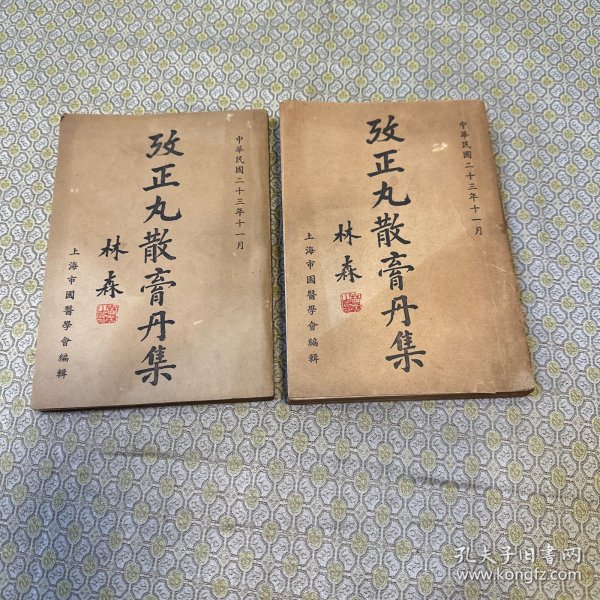 中華民國二十三年十一月
攷正丸散膏丹集
林森
上海市國醫學會編輯
中華民國二十三年十一月
攷正丸散膏丹集
林森
上海市國醫學會編輯
孔夫子旧书网
www.kongfz.com